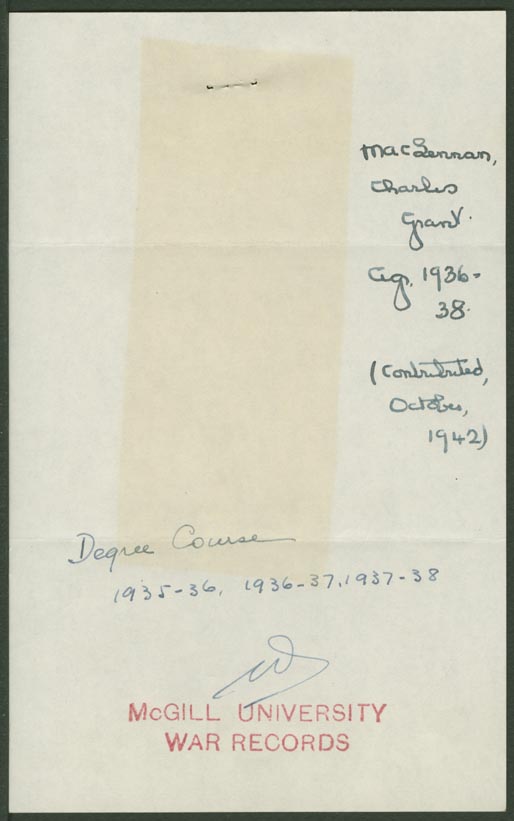 MacLennan,
Charles
Grant.
Agr. 1936-
38.
(Contributed,
October,
1942)
Degree Course
1935-36, 1936-37, 1937-38
McGILL UNIVERSITY
WAR RECORDS